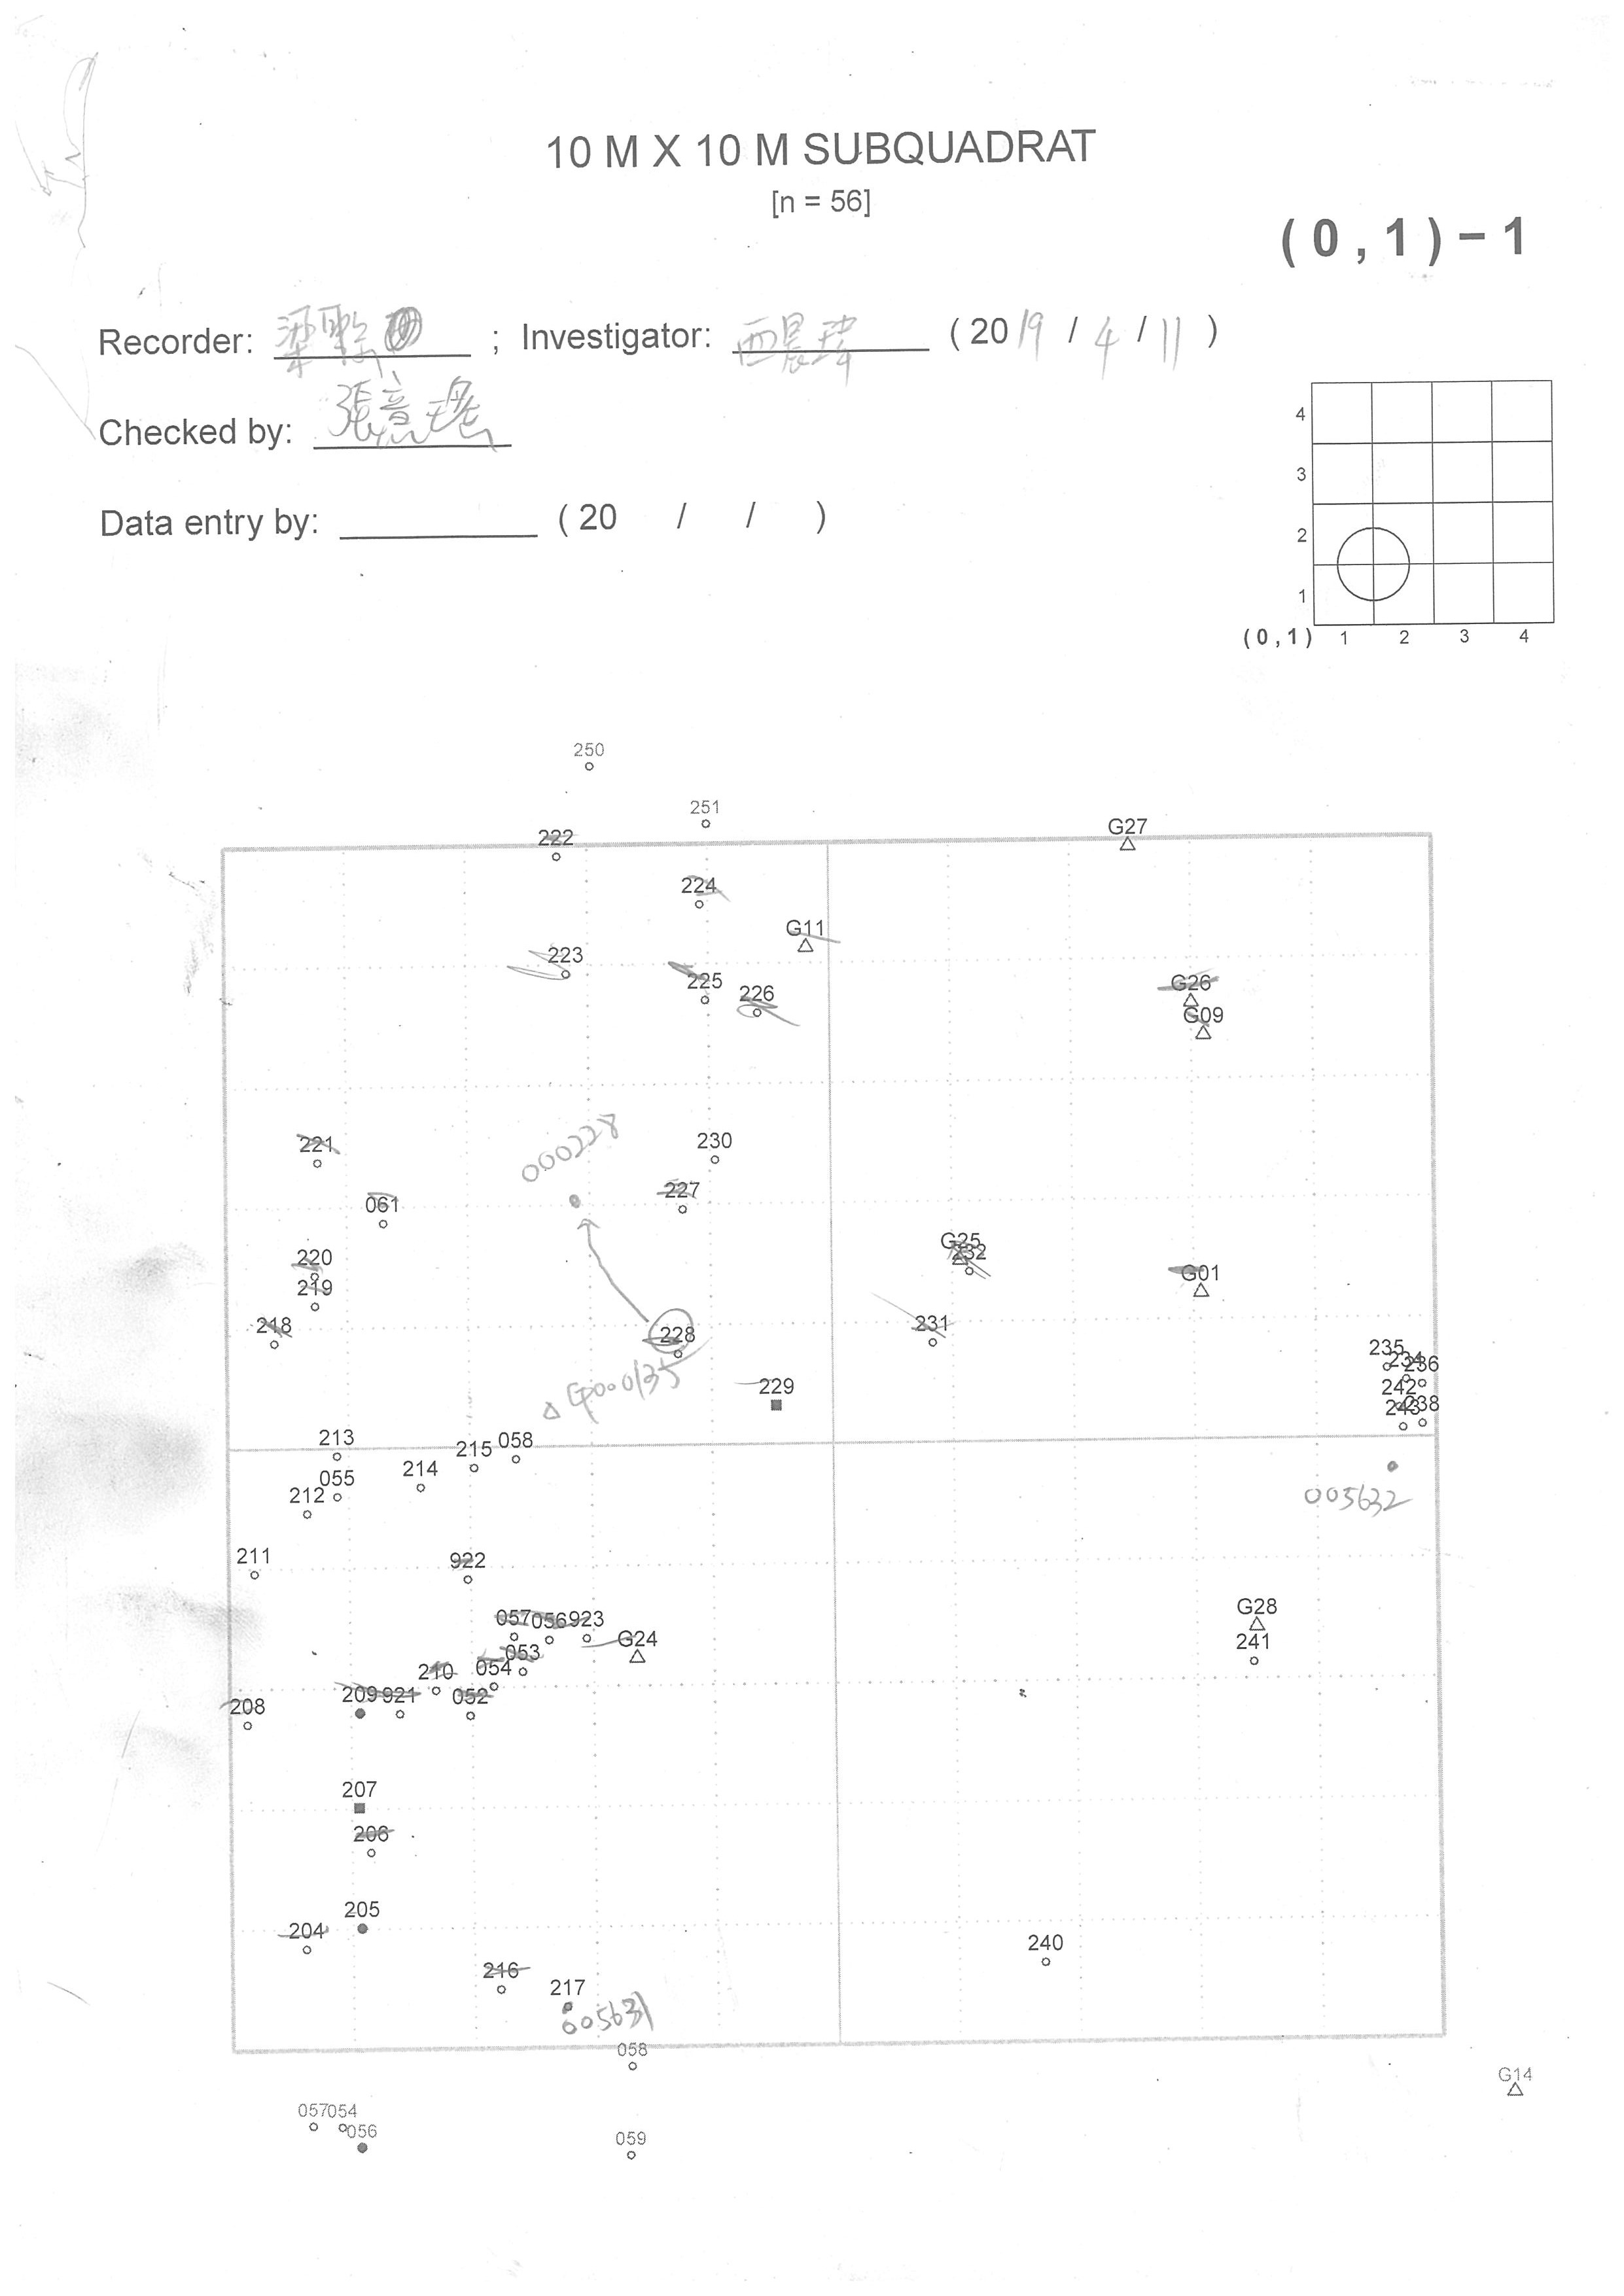 10 M X 10 M SUBQUADRAT
[n = 56]
(0,1)-1
Recorder: ; Investigator: (2019/4/11)
Checked by: 張意瑤
Data entry by: (20 / / )
4
3
2
1
(0,1) 1 2 3 4
250
251
222
G27
224
G11
223
225
226
G26
G09
000228
221
230
227
061
220
219
218
G25
232
G01
228
231
G000135
229
235
234
236
242
243
238
213
215
058
214
055
212
005632
211
922
057
056
923
G24
053
054
210
G28
241
209
921
052
208
207
206
205
204
240
216
217
005631
058
G14
057
054
056
059